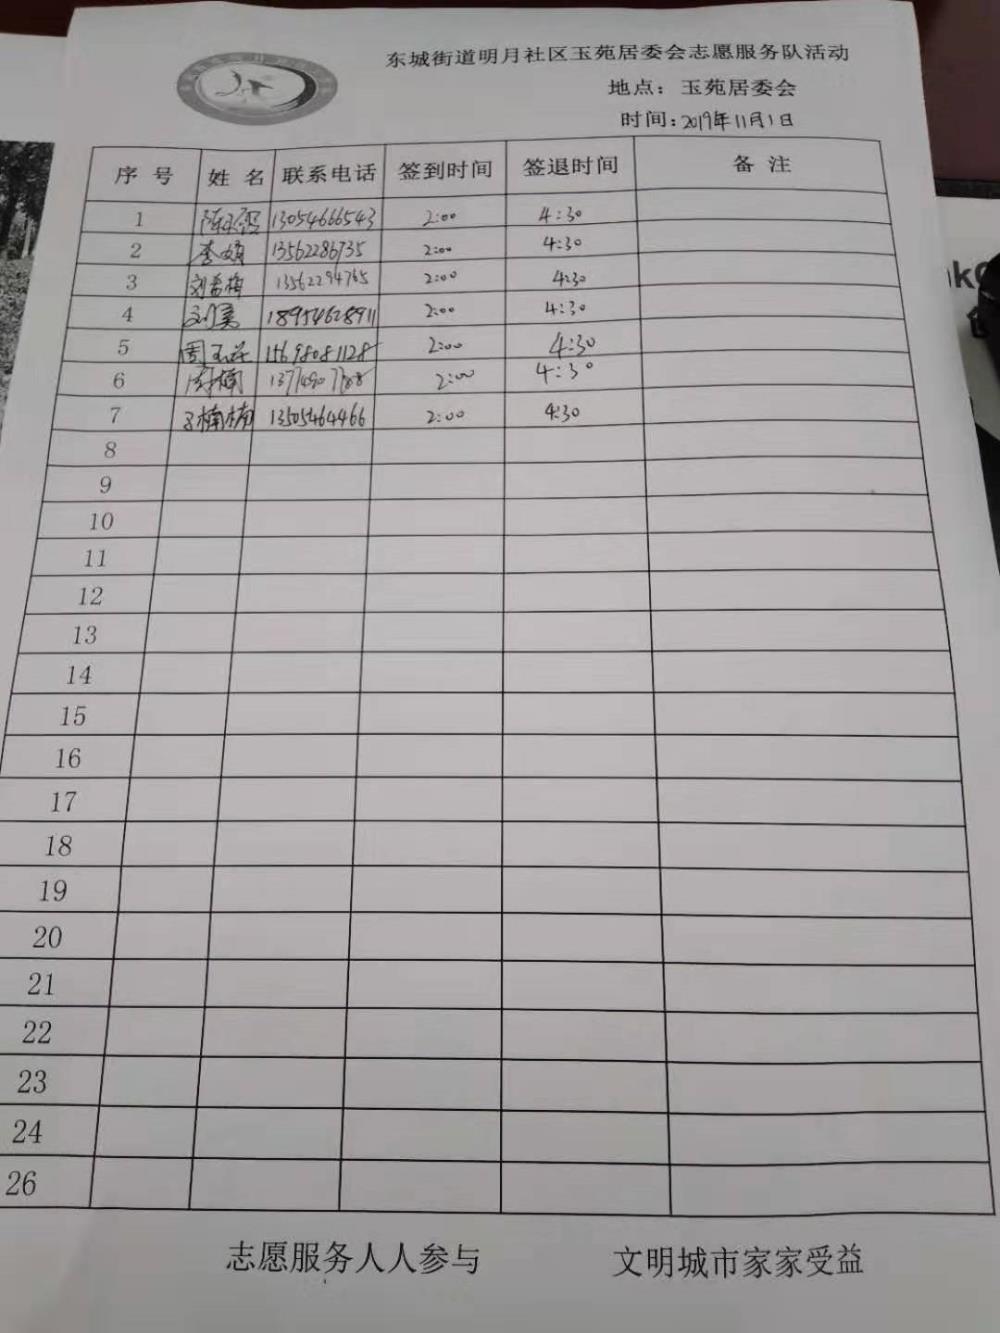 东城街道明月社区玉苑居委会志愿服务队活动
地点：玉苑居委会
时间：2019年11月1日
序号 姓名 联系电话 签到时间 签退时间 备注
1 13054666543 2:00 4:30
2 李婷 13562286735 2:00 4:30
3 刘希梅 13562294765 2:00 4:30
4 刘美 18954628911 2:00 4:30
5 周玉萍 15698081128 2:00 4:30
6 周楠 2:00 4:30
7 楠楠 13505464466 2:00 4:30
8
9
10
11
12
13
14
15
16
17
18
19
20
21
22
23
24
26
志愿服务人人参与 文明城市家家受益